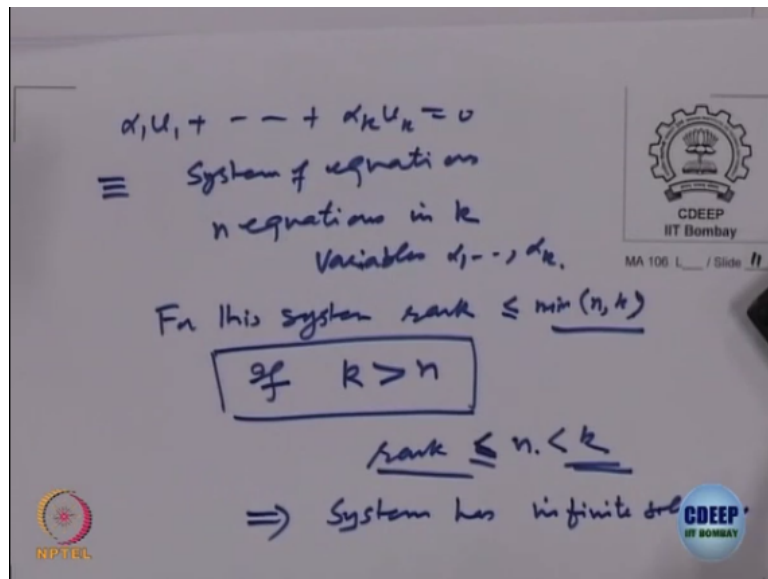 α₁u₁ + --- + αₖuₖ = 0
≡ System of equations
n equations in k
Variables α₁, --, αₖ.
For this system rank ≤ min (n, k)
If k > n
rank ≤ n. < k
⇒ System has infinite
CDEEP
IIT Bombay
MA 106 L___ / Slide 11
NPTEL
CDEEP
IIT BOMBAY